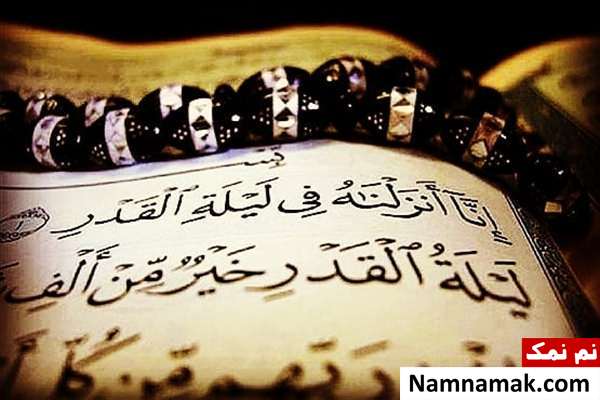 إِنَّآ أَنزَلْنَـٰهُ فِى لَيْلَةِ ٱلْقَدْرِ ١
لَيْلَةُ ٱلْقَدْرِ خَيْرٌ مِّنْ أَلْفِ
رَبِّهِم مِّن كُلِّ
نم نمک
Namnamak.com